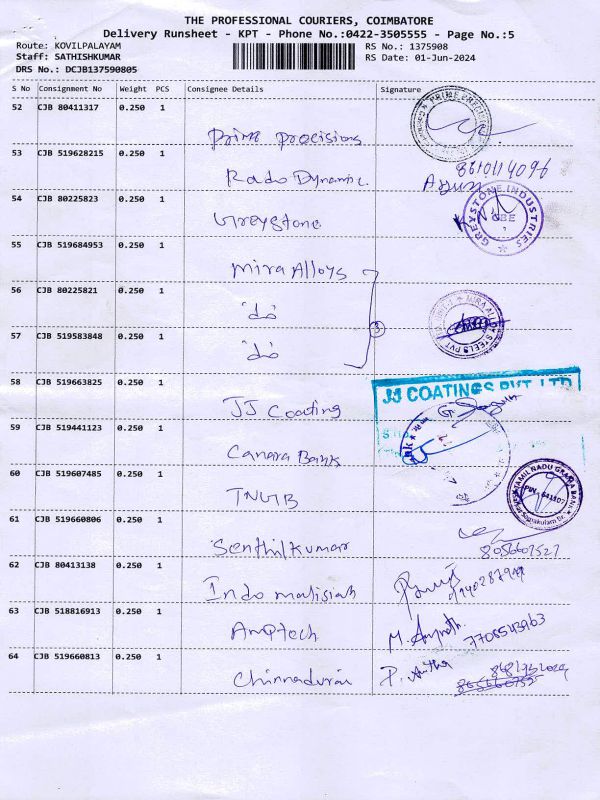 THE PROFESSIONAL COURIERS, COIMBATORE
Delivery Runsheet - KPT - Phone No.:0422-3505555 - Page No.:5
Route: KOVILPALAYAM RS No.: 1375908
Staff: SATHISHKUMAR RS Date: 01-Jun-2024
DRS No.: DCJB137590805
S No Consignment No Weight PCS Consignee Details Signature
52 CJB 80411317 0.250 1
Prime Precisions
53 CJB 519628215 0.250 1
8610114096
Rado Dynamic Arjun
54 CJB 80225823 0.250 1
Greystone
GREYSTONE INDUSTRIES
CBE
55 CJB 519684953 0.250 1
Mira Alloys
56 CJB 80225821 0.250 1
"do"
MIRA ALLOY STEELS PVT
57 CJB 519583848 0.250 1
"do"
3
58 CJB 519663825 0.250 1
JJ COATINGS PVT LTD
JJ Coating
59 CJB 519441123 0.250 1
Canara Bank
60 CJB 519607485 0.250 1
TAMIL NADU GRAMA BANK
PIN 641107
TNGB
61 CJB 519660806 0.250 1
Senthilkumar 8056607527
62 CJB 80413138 0.250 1
Indo malisiah
63 CJB 518816913 0.250 1
Amptech M.
64 CJB 519660813 0.250 1
Chinnadurai P. Anitha